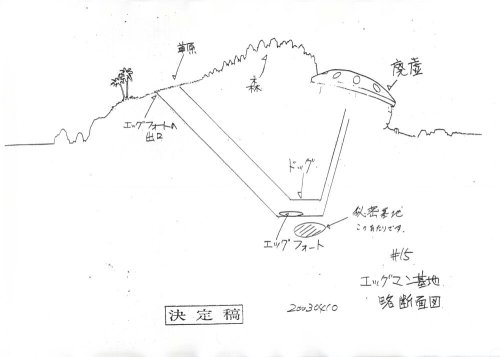 草原
森
廃虚
エッグフォートの
出口
ドッグ
秘密基地
このあたりです。
エッグフォート
#15
エッグマン基地
略断面図
決定稿
20030410